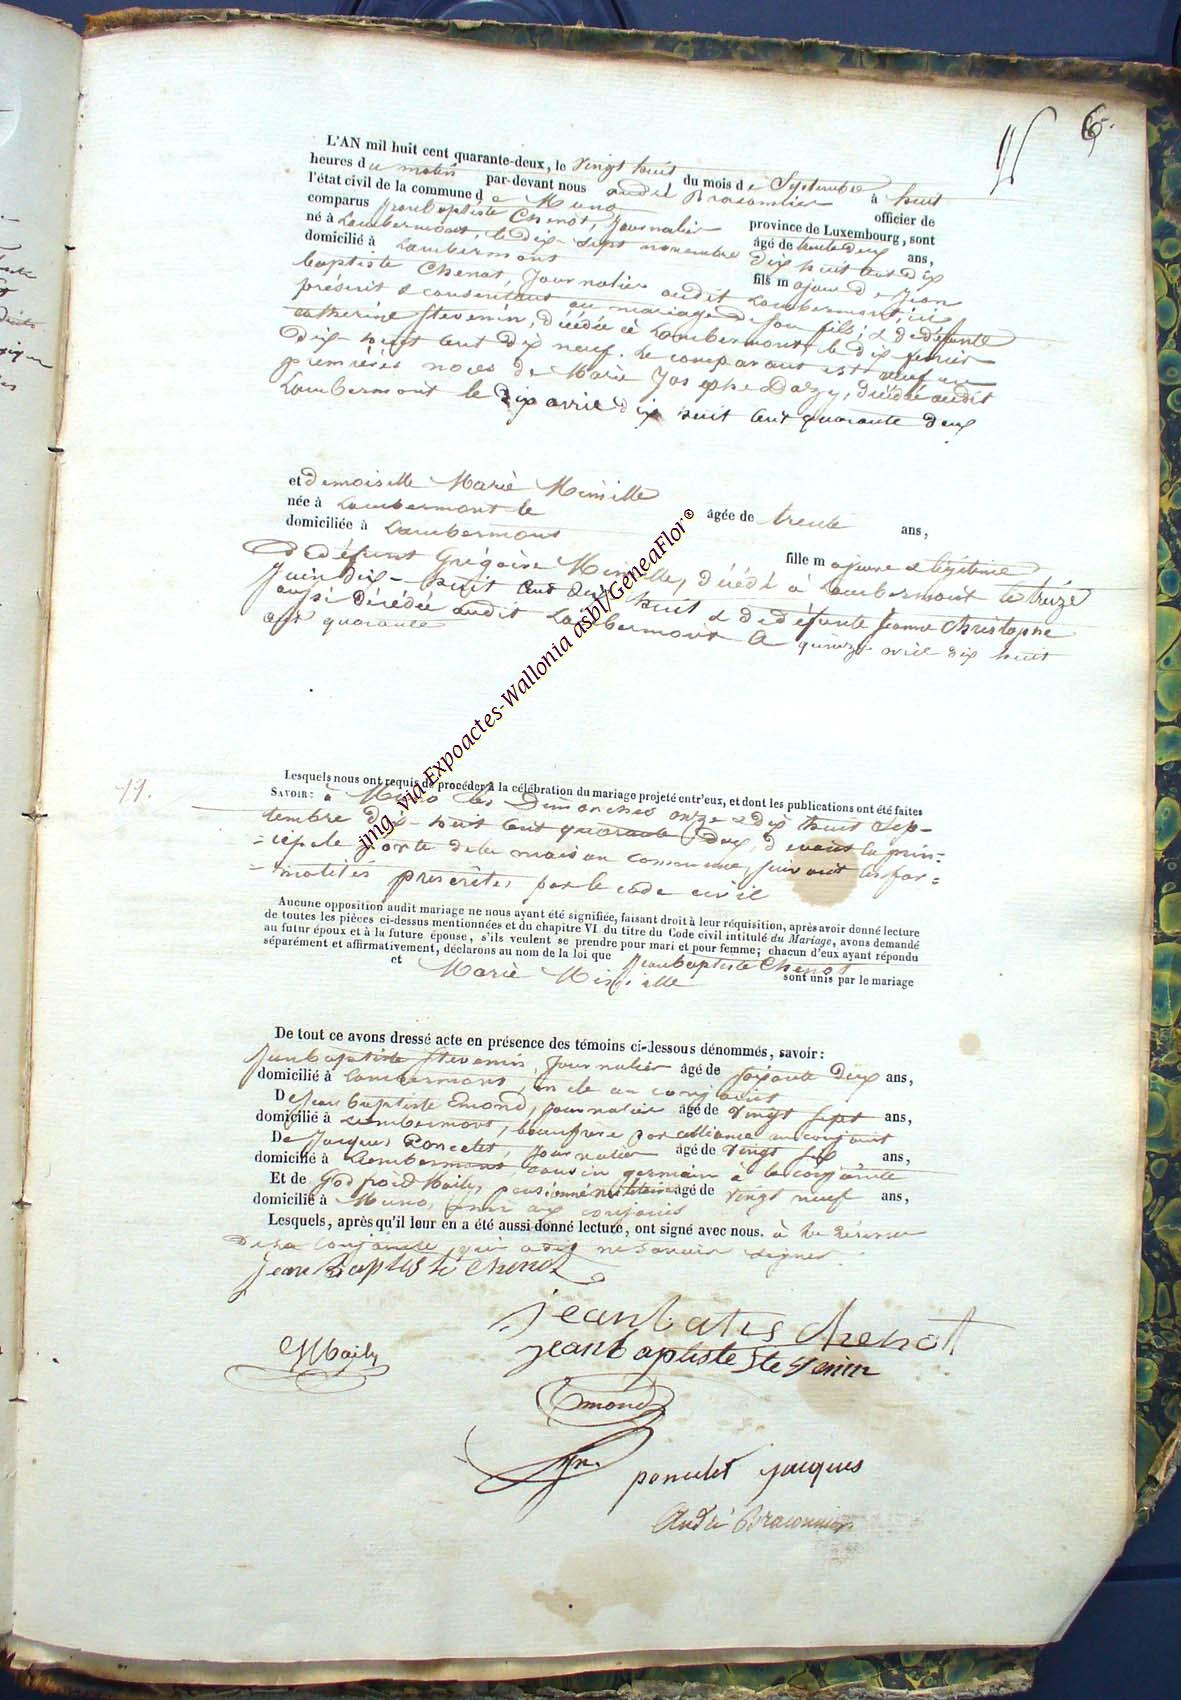 6.
L'AN mil huit cent quarante-deux, le vingt huit du mois de Septembre à huit
heures du matin par-devant nous andré Braconnier officier de
l'état civil de la commune de Muno province de Luxembourg, sont
comparus Jean baptiste Chenot, Journalier âgé de trente deux ans,
né à Lambermont, le dix-sept novembre dix huit cent dix
domicilié à Lambermont fils majeur de Jean
baptiste Chenot, Journalier audit Lambermont, ici
présent & consentant au mariage de son fils; & de défunte
catherine Stevenin, décédée à Lambermont, le dix fevrier
Dix-huit cent dix neuf. Le comparant est veuf en
premières noces de Marie Josephe Dazy, décédée audit
Lambermont le dix avril dix huit cent quarante deux
et demoiselle Marie Miniille
née à Lambermont le âgée de trente ans,
domiciliée à Lambermont
fille majeure & légitime
de défunt Grégoire Miniille, décédé à Lambermont le treize
Juin dix-huit cent dix huit & de défunte Jeanne Christophe
aussi décédée audit Lambermont le quinze avril dix huit
cent quarante
11.
Lesquels nous ont requis de procéder à la célébration du mariage projeté entr'eux, et dont les publications ont été faites
SAVOIR: à Muno les Dimanches onze & dix huit Sep-
tembre dix-huit cent quarante deux, devant la prin-
=cipale porte de la maison commune, suivant les for=
=malités prescrites par le code civil
Aucune opposition audit mariage ne nous ayant été signifiée, faisant droit à leur réquisition, après avoir donné lecture
de toutes les pièces ci-dessus mentionnées et du chapitre VI du titre du Code civil intitulé du Mariage, avons demandé
au futur époux et à la future épouse, s'ils veulent se prendre pour mari et pour femme; chacun d'eux ayant répondu
séparément et affirmativement, déclarons au nom de la loi que Jean baptiste Chenot
et Marie Miniille sont unis par le mariage
De tout ce avons dressé acte en présence des témoins ci-dessous dénommés, savoir:
Jean baptiste Stevenin, Journalier âgé de soixante deux ans,
domicilié à Lambermont, oncle au conjoint
De Jean baptiste Emond, journalier âgé de vingt sept ans,
domicilié à Lambermont, beaufrère par alliance au conjoint
De Jacques Poncelet, journalier âgé de vingt six ans,
domicilié à Lambermont cousin germain à la conjointe
Et de Godfroid Mailly, pensionné militaire âgé de vingt neuf ans,
domicilié à Muno, ami aux conjoints
Lesquels, après qu'il leur en a été aussi donné lecture, ont signé avec nous. à la réserve
de la conjointe qui a dit ne savoir signer.
jean Baptiste Chenot
jean batis Chenott
jean baptiste Stevenin
Emond
poncelet jacques
André Braconnier
img. via Expoactes-Wallonia asbl/GeneaFlor©